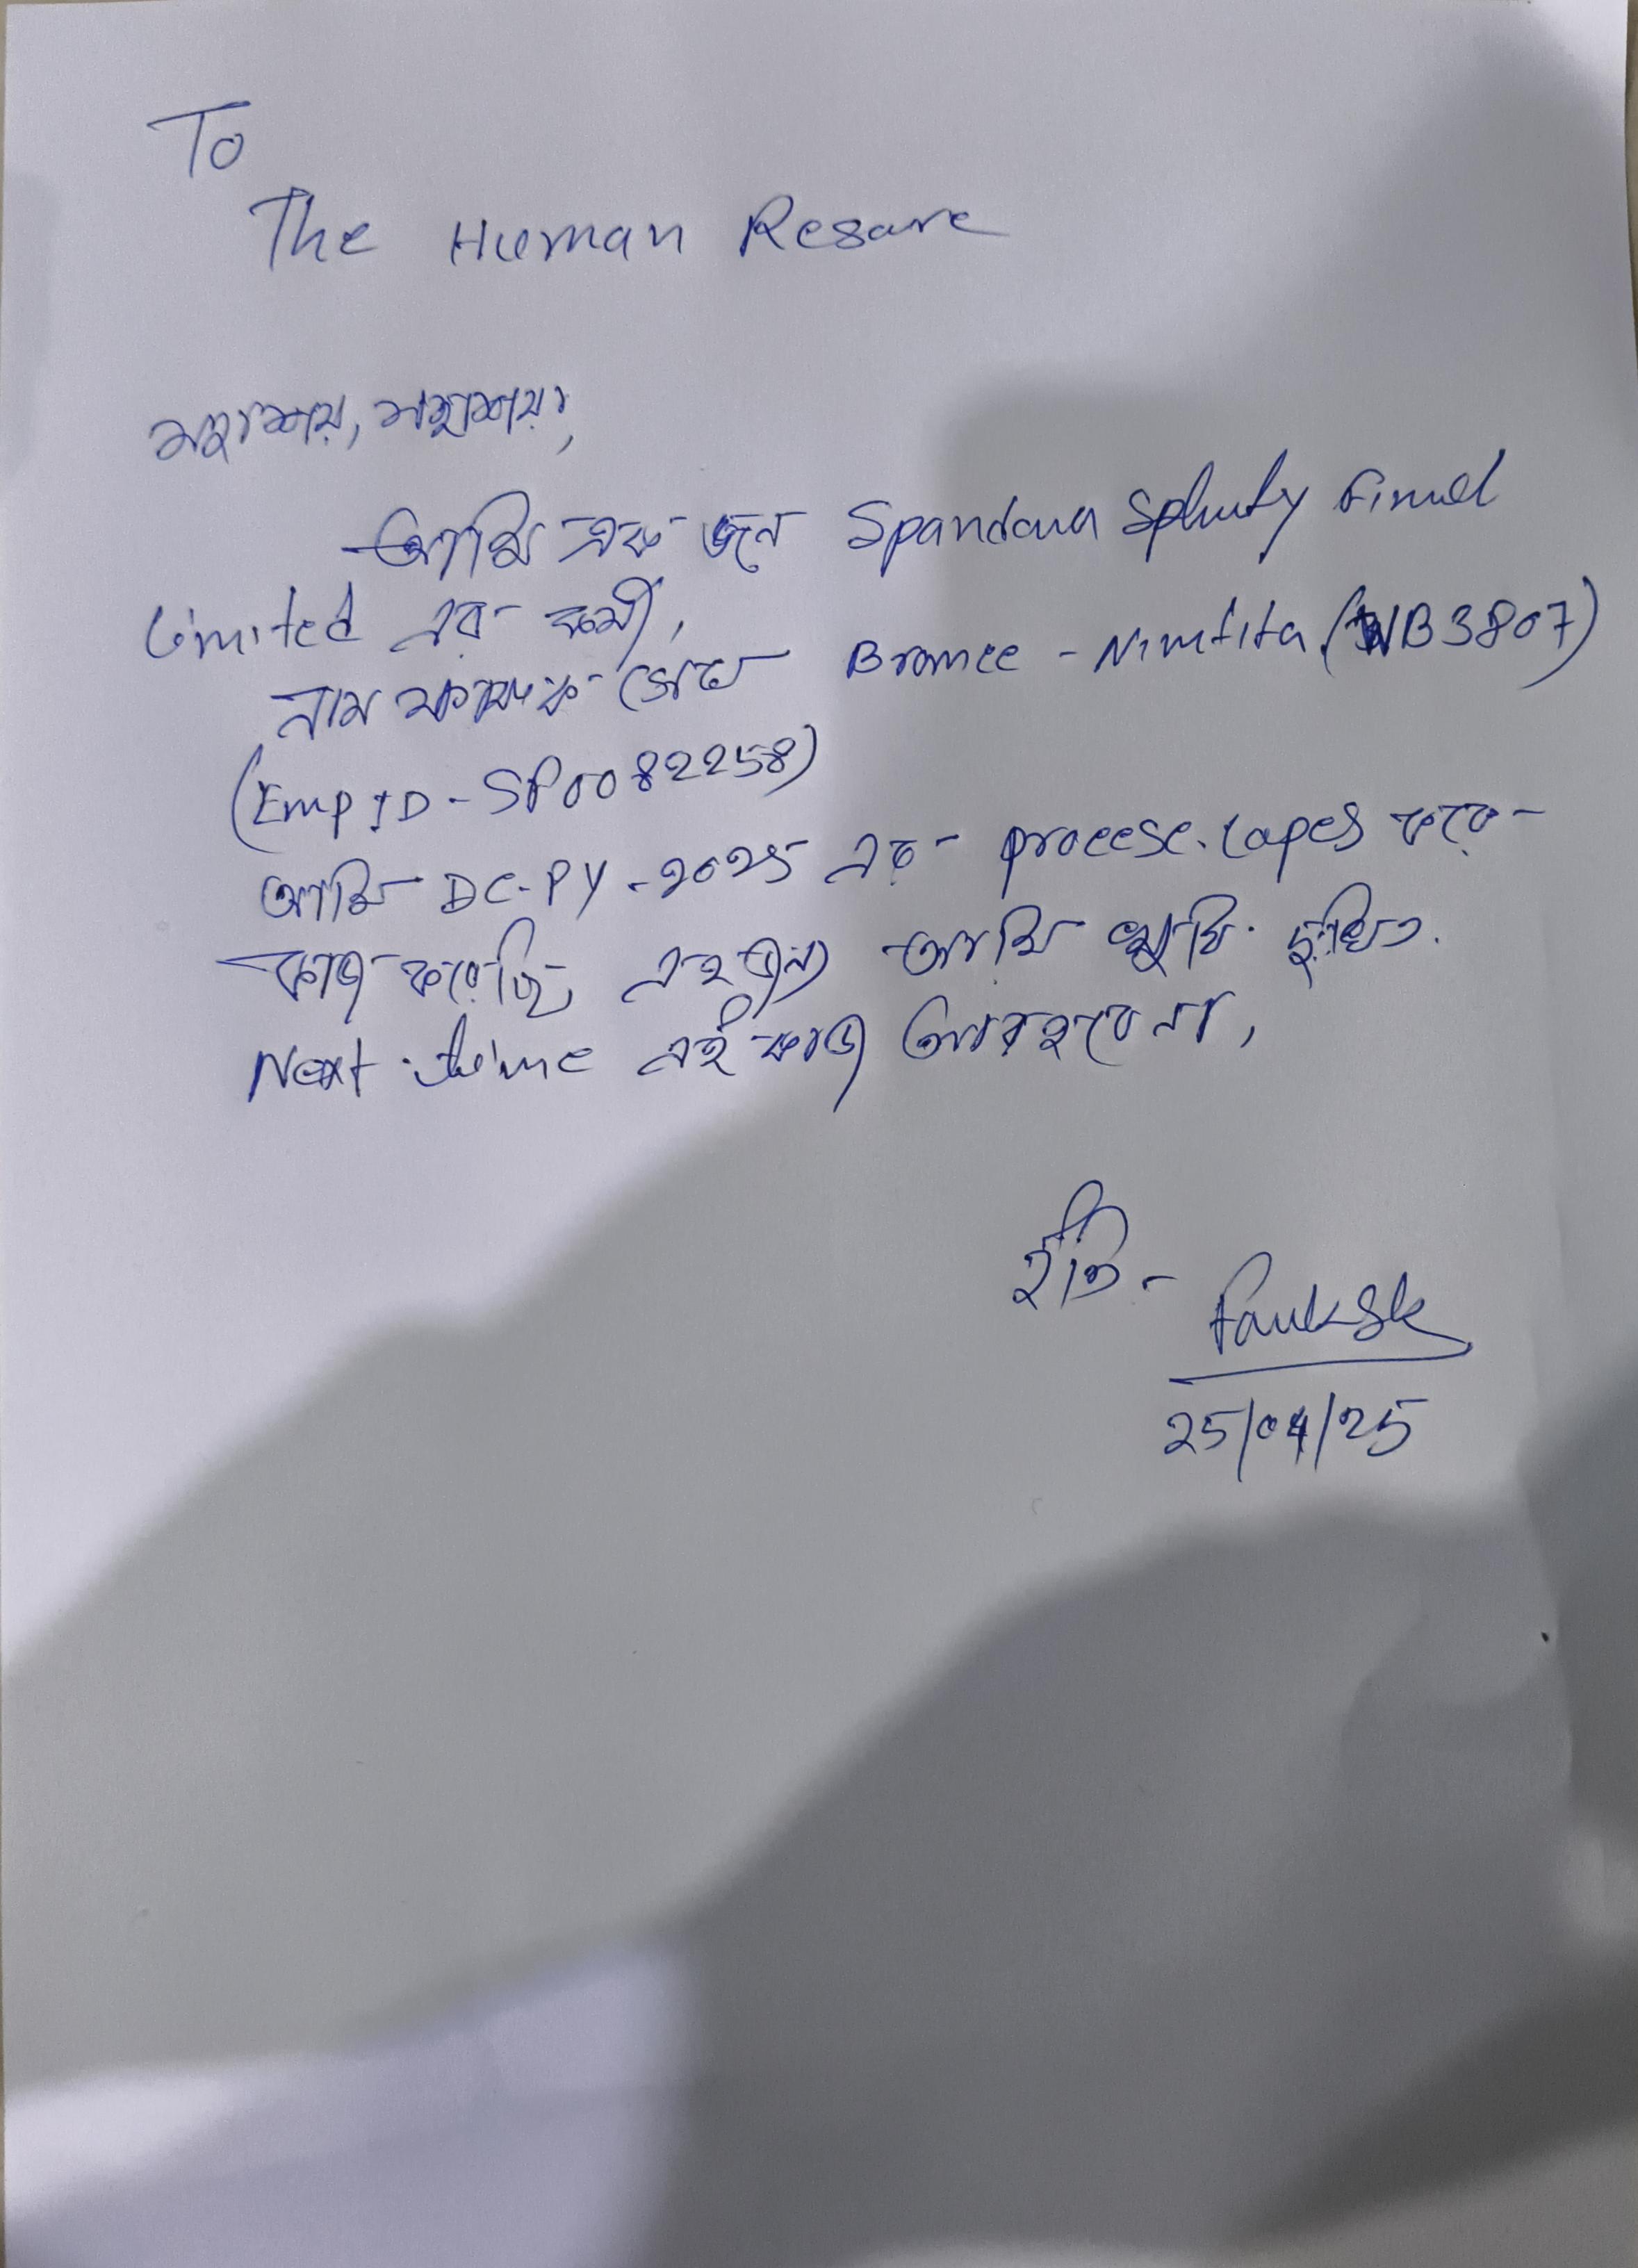 To
The Human Resare
মহাশয়, মহাশয়া,
আমি এক জন Spandana Sphurty Finnel
Limited এর কর্মী,
নাম ফারুক সেখ Brance - Nimtita (WB3807)
(Emp ID - SP0082258)
আমি DC-PY-2025 এর process Lapes করে
কাজ করেছি, এই জন্য আমি খুবি দুঃখিত.
Next time এই কাজ আর হবে না,
ইতি - Faruk Sk
25/04/25